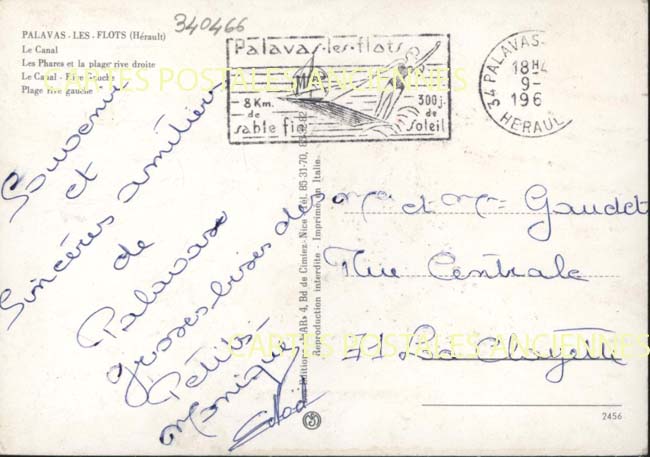 340466
PALAVAS - LES - FLOTS (Hérault)
Le Canal
Les Phares et la plage rive droite
Le Canal - Rive Gauche
Plage rive gauche
Palavas-les-flots
8 Km. de sable fin
300 j. de soleil
34 PALAVAS-
18H
9-
196
HERAUL
CARTES POSTALES ANCIENNES
Souvenir
et
Sincères amitiés
de
Palavas
grosses bises des
Petits
Monique
Mr et Mme Gaudet
Rue Centrale
71 La Chayette
4, Bd de Cimiez - Nice - Tél. 85-31-70,
Reproduction interdite - Imprimé en Italie
CARTES POSTALES ANCIENNES
2456